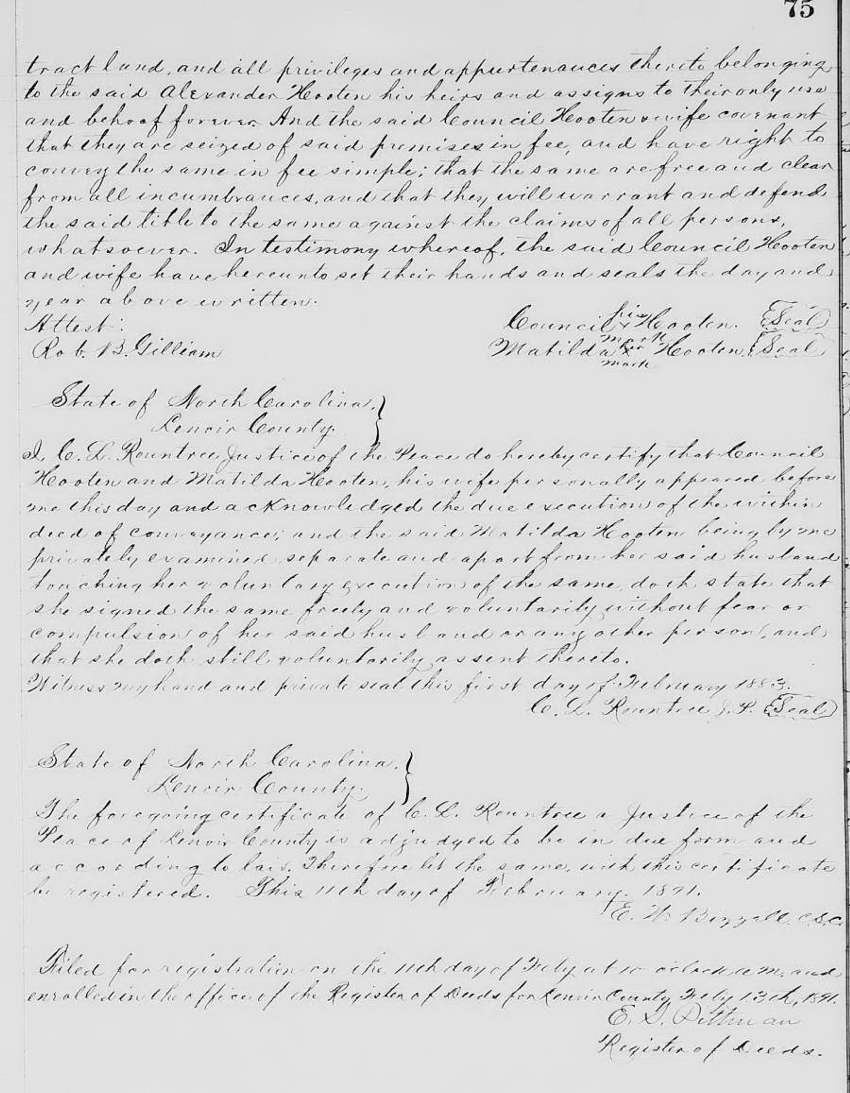 75
tract land, and all privileges and appurtenances thereto belonging
to the said Alexander Hooten his heirs and assigns to their only use
and behoof forever. And the said Council Hooten & wife covenant
that they are seized of said premises in fee, and have right to
convey the same in fee simple; that the same are free and clear
from all incumbrances, and that they will warrant and defend
the said title to the same against the claims of all persons,
whatsoever. In testimony whereof, the said Council Hooten
and wife have hereunto set their hands and seals the day and
year above written.
Attest: Council his x mark Hooten. (Seal)
Rob. B. Gilliam Matilda her x mark Hooten (Seal)
State of North Carolina, }
Lenoir County.
I C. L. Rountree Justice of the Peace do hereby certify that Council
Hooten and Matilda Hooten, his wife personally appeared before
me this day and acknowledged the due execution of the within
deed of conveyance; and the said Matilda Hooten being by me
privately examined separate and apart from her said husband
touching her voluntary execution of the same, doth state that
she signed the same freely and voluntarily without fear or
compulsion of her said husband or any other person, and
that she doth still voluntarily assent thereto.
Witness my hand and private seal this first day of February 1883.
C. L. Rountree J. P. (Seal)
State of North Carolina. }
Lenoir County.
The foregoing certificate of C. L. Rountree a Justice of the
Peace of Lenoir County is adjudged to be in due form and
according to law. Therefore let the same, with this certificate
be registered. This 11th day of February. 1891.
E. W. Bizzell. C.S.C.
Filed for registration on the 11th day of Feby at 10 oclock a.m. and
enrolled in the office of the Register of Deeds for Lenoir County Feby 13th, 1891.
Pittman
Register of Deeds.